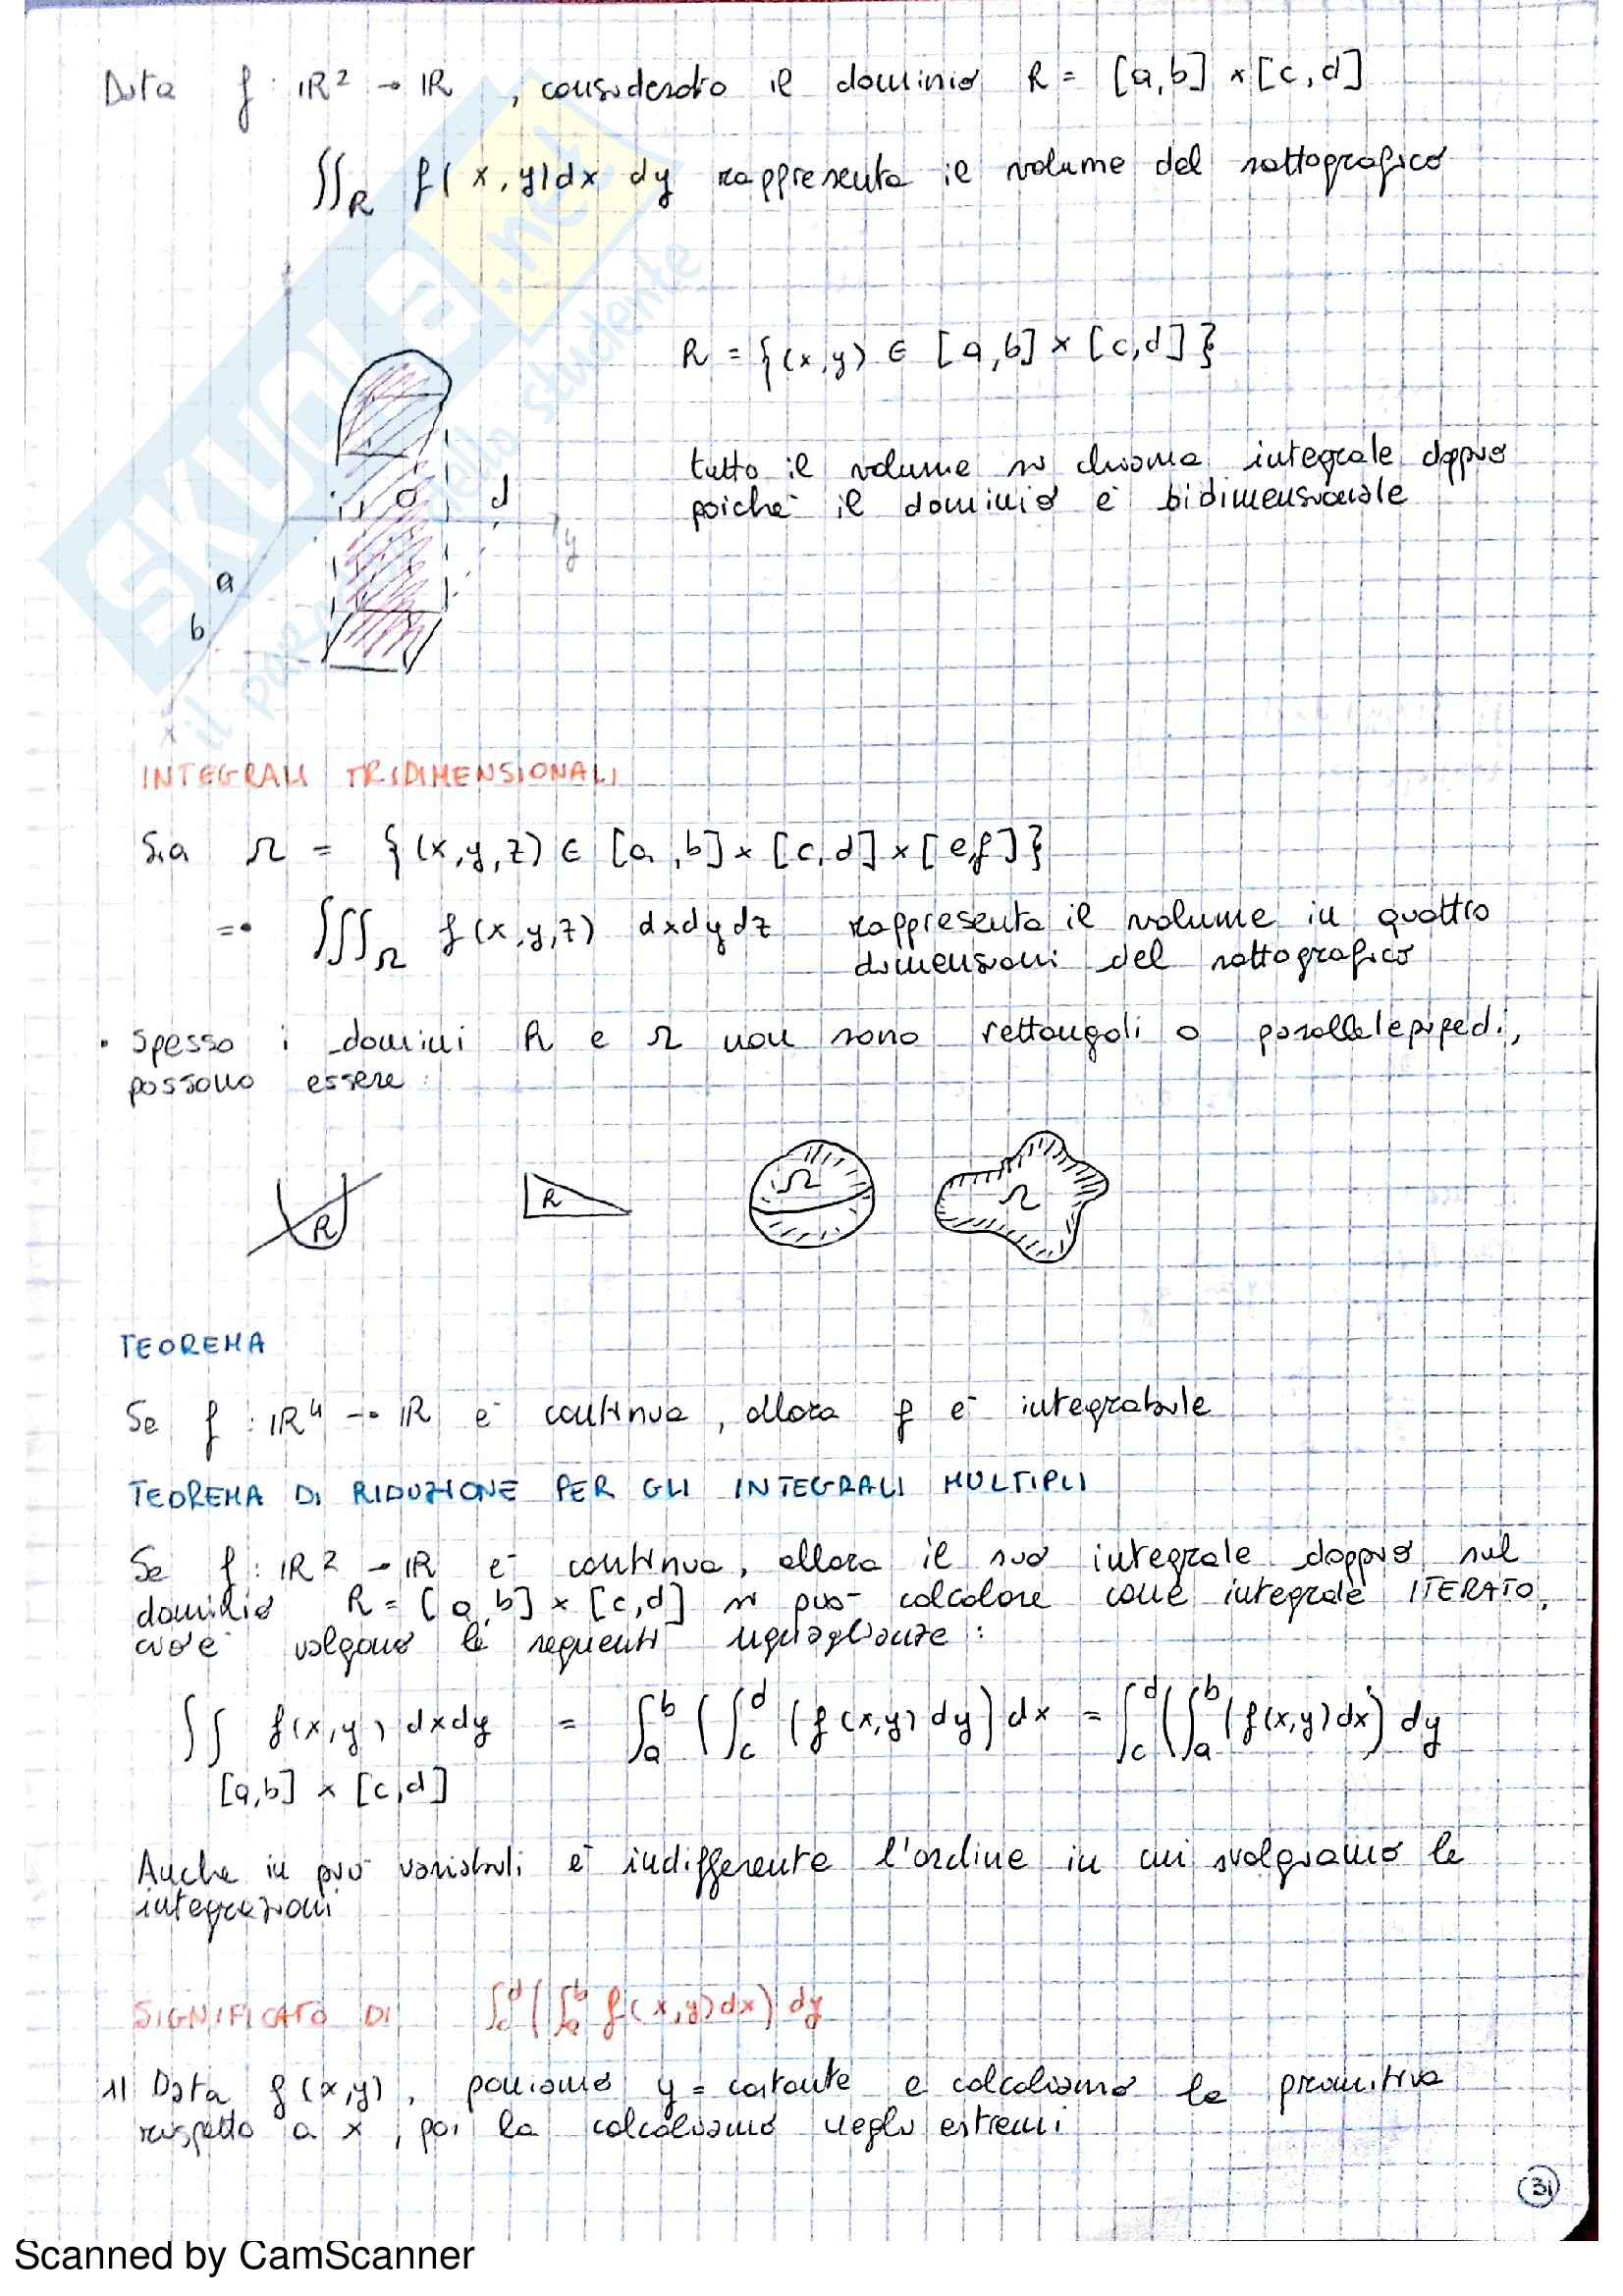 Data f : ℝ² → ℝ , considerato il dominio R = [a,b] × [c,d]
∬_R f(x,y)dx dy rappresenta il volume del sottografico
R = {(x,y) ∈ [a,b] × [c,d]}
tutto il volume si chiama integrale doppio
poiché il dominio è bidimensionale
c d
y
a
b
x
SKUOLA.net
il paradiso dello studente
INTEGRALI TRIDIMENSIONALI
Sia Ω = {(x,y,z) ∈ [a,b] × [c,d] × [e,f]}
=• ∭_Ω f(x,y,z) dxdydz rappresenta il volume in quattro
dimensioni del sottografico
• Spesso i domini R e Ω non sono rettangoli o parallelepipedi,
possono essere:
R R Ω Ω
TEOREMA
Se f : ℝ⁴ → ℝ è continua, allora f è integrabile
TEOREMA DI RIDUZIONE PER GLI INTEGRALI MULTIPLI
Se f : ℝ² → ℝ è continua, allora il suo integrale doppio sul
dominio R = [a,b] × [c,d] si può calcolare come integrale ITERATO,
cioè valgono le seguenti uguaglianze :
∬ f(x,y) dxdy = ∫_a^b (∫_c^d (f(x,y) dy) dx = ∫_c^d (∫_a^b (f(x,y)dx) dy
[a,b] × [c,d]
Anche in più variabili è indifferente l'ordine in cui svolgiamo le
integrazioni
SIGNIFICATO DI ∫_c^d (∫_a^b f(x,y)dx) dy
1) Data f(x,y), poniamo y = costante e calcoliamo la primitiva
rispetto a x, poi la calcoliamo negli estremi
31
Scanned by CamScanner